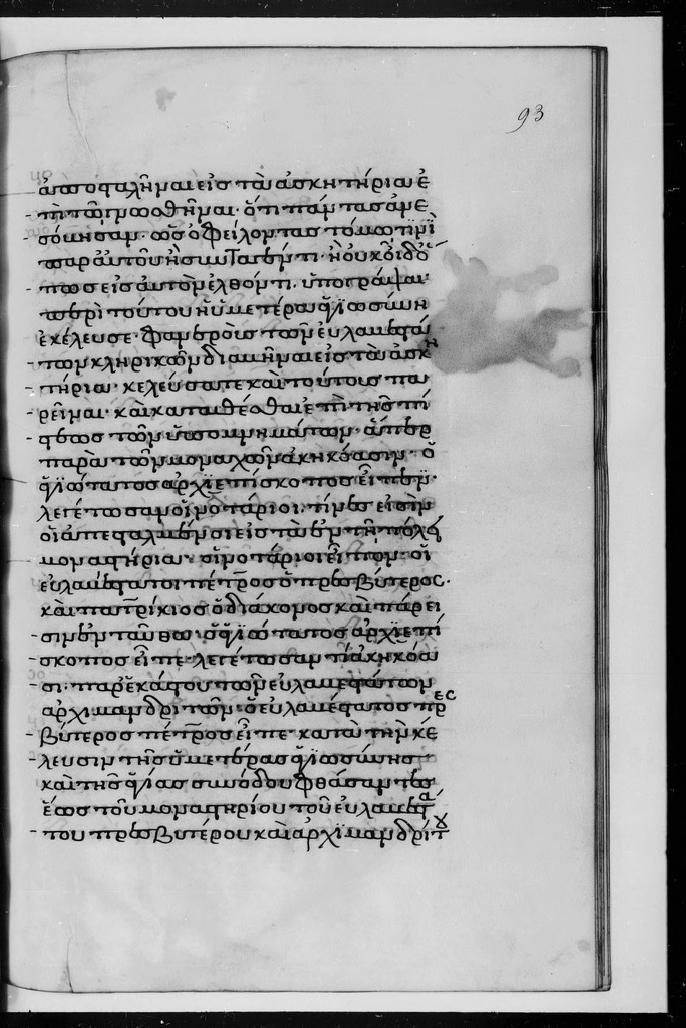 93
ἀποσταλῆναι εἰς τὰ ἀσκητήρια ἐ
πὶ τῶ γνωσθῆναι· ὅτι πάντας ἀνε
σόμησαν· ὡς ὀφείλοντας τόμω τινὶ
παρ αὐτοῦ ἢ συνταγέντι· ἢ οὐκ οἶδ ὅ
πως εἰς αὐτὸν ἐλθόντι· ὑπογράψαι·
περὶ τούτου ἡ ὑμετέρα ἁγιωσύνη
ἐκέλευσε φανεροῖς τῶν εὐλαβεστά
των κληρικῶν διαμῆναι εἰς τὰ ἀσκη
τήρια· κελεύσατε καὶ τούτους πα
ρεῖναι· καὶ καταθέσθαι ἐπὶ τῆς πί
στεως τῶν ὑπομνημάτων· ἅπερ
παρὰ τῶν μοναχῶν ἀκηκόασιν· ὁ
ἁγιώτατος ἀρχϊεπίσκοπος εἶπεν·
λεγέτωσαν οἱ νοτάριοι· τίνες εἰσὶν
οἱ ἀπεσταλμένοι εἰς τὰ ἐν τῆ πόλει
μοναστήρια· οἱ νοτάριοι εἶπον· οἱ
εὐλαβέστατοι πέτρος ὁ πρεσβύτερος·
καὶ πατρίκιος ὁ διάκονος καὶ πάρει
σιν ἐνταῦθα· ὁ ἁγιώτατος ἀρχϊεπί
σκοπος εἶπε· λεγέτωσαν τί ἀκηκόα
σι· παρ ἑκάστου τῶν εὐλαβεστάτων
ἀρχιμανδριτῶν· ὁ εὐλαβέστατος πρες
βύτερος πέτρος εἶπε· κατὰ τὴν κέ
λευσιν τῆς ὑμετέρας ἁγιωσύνης
καὶ τῆς ἁγίας συνόδου φθάσαντες
ἕως τοῦ μοναστηρίου τοῦ εὐλαβεστά
του πρεσβυτέρου καὶ ἀρχϊμανδρίτου